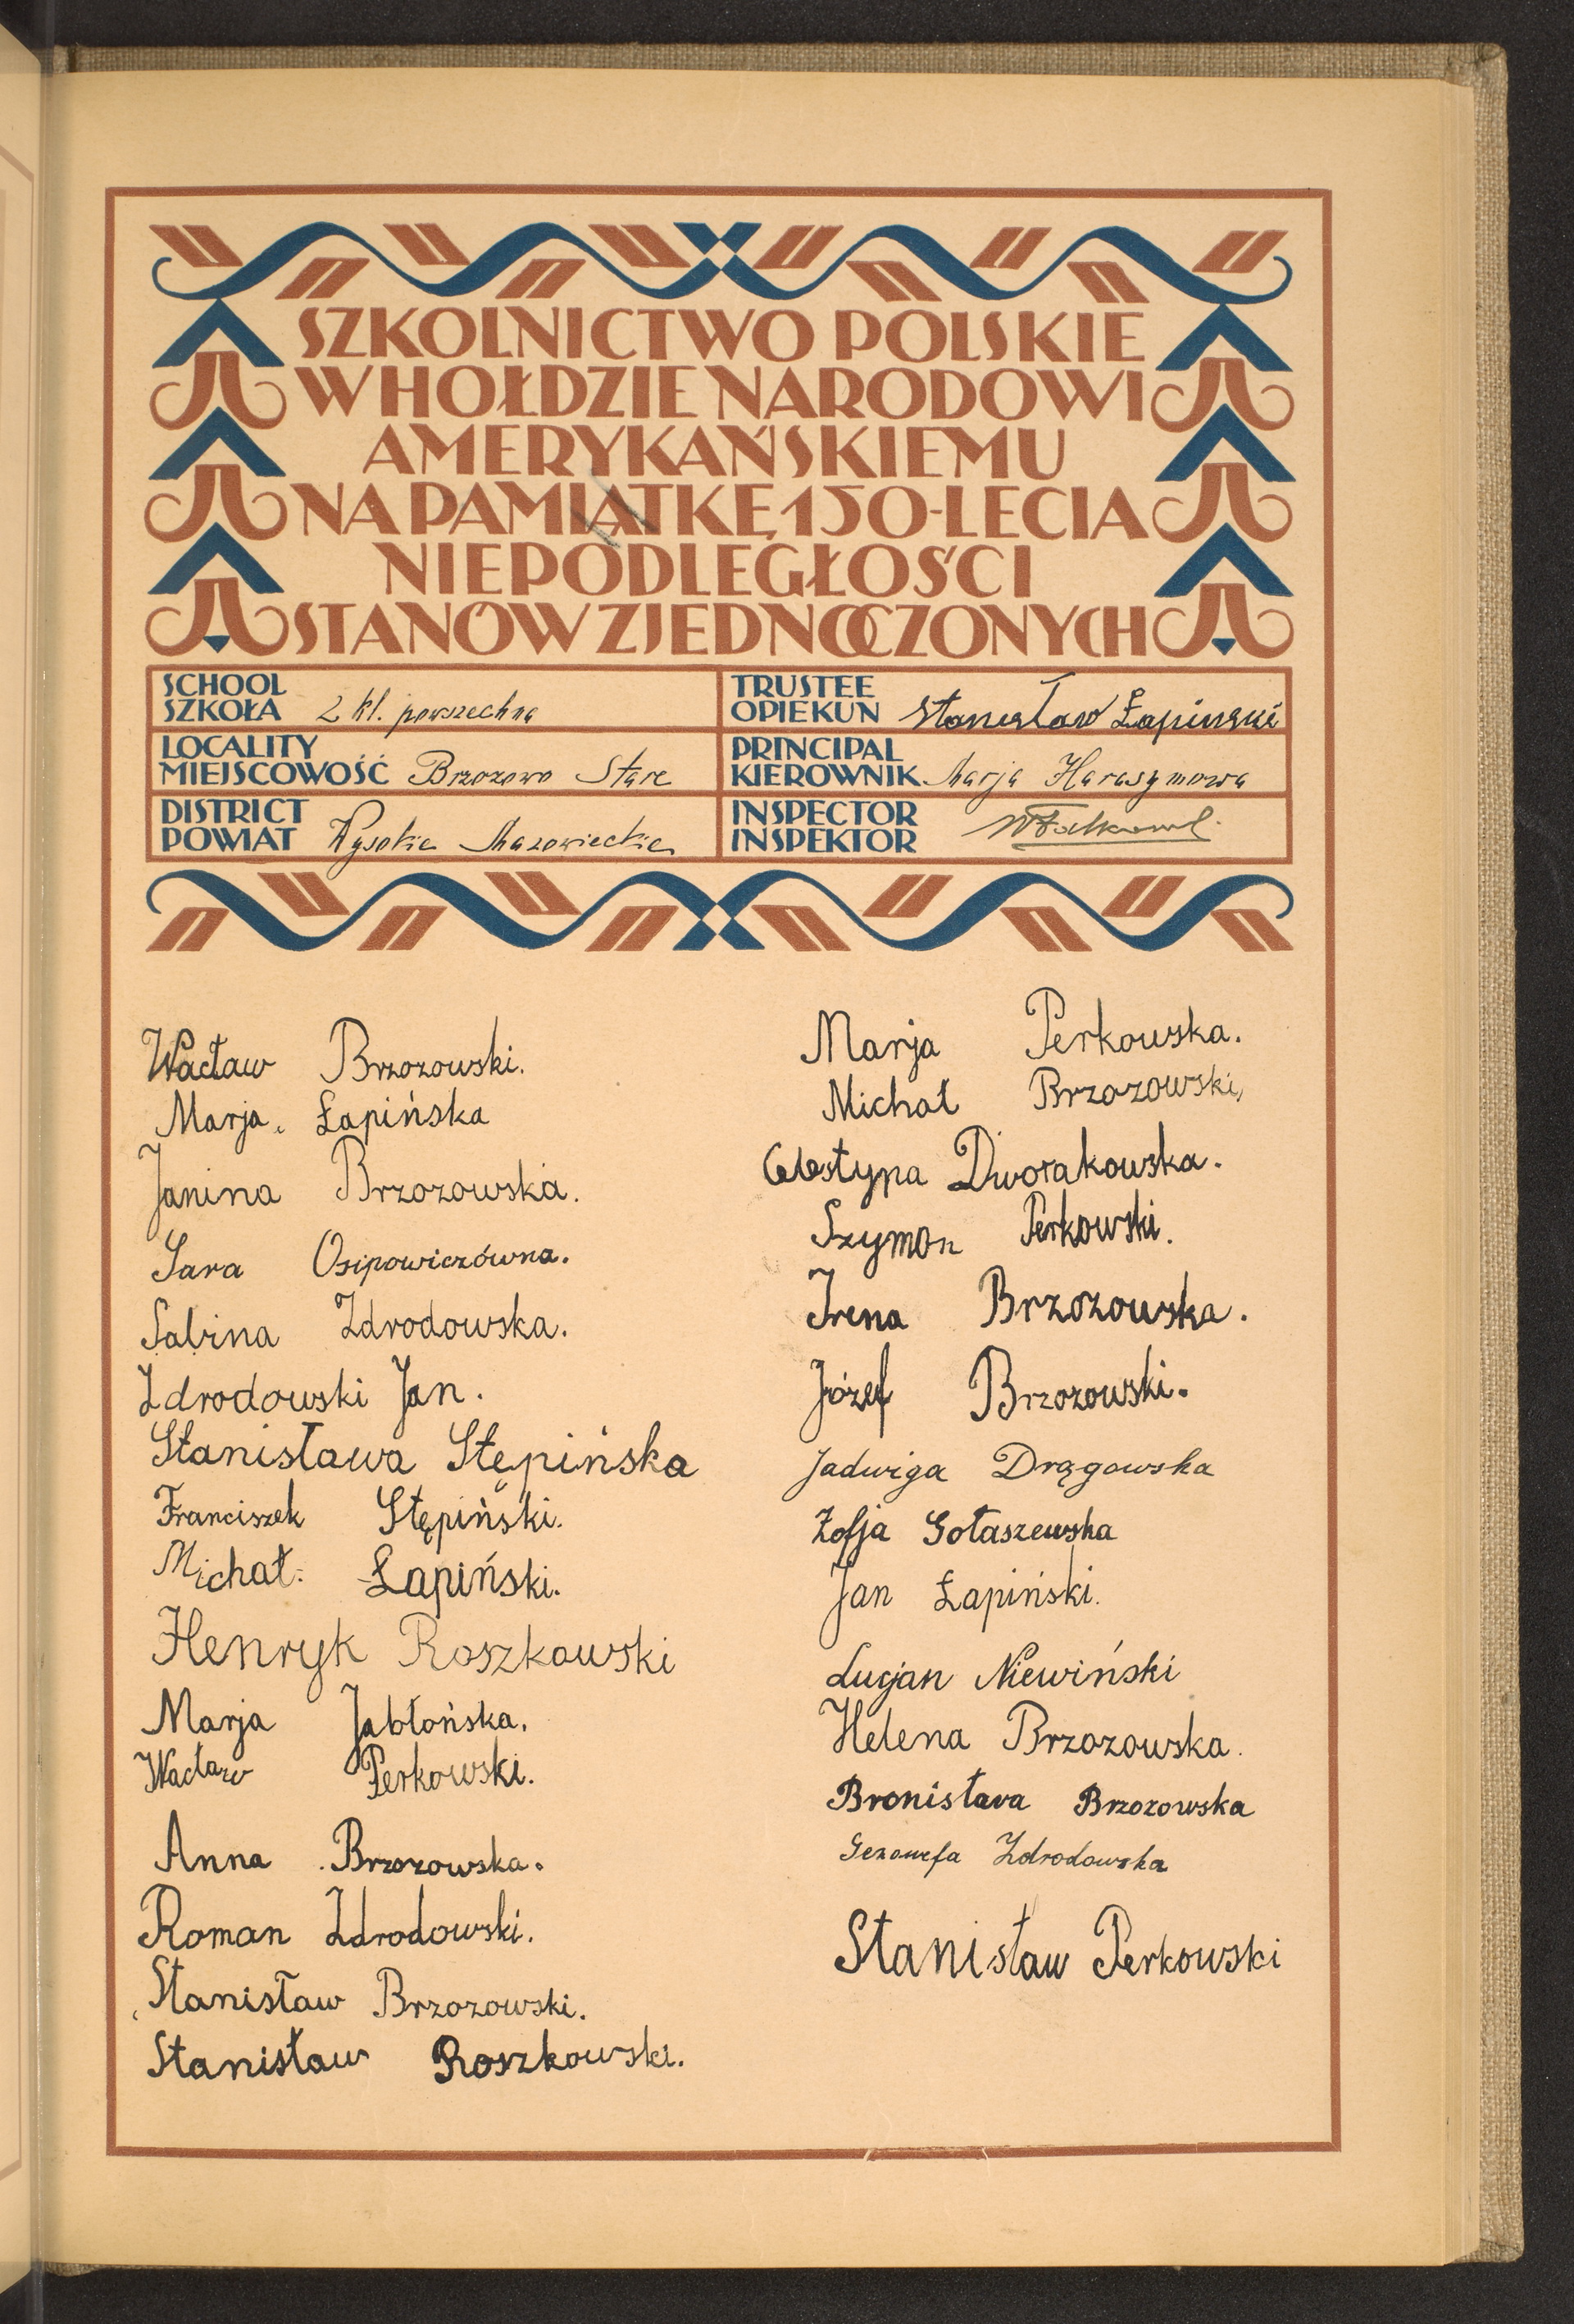 SZKOLNICTWO POLSKIE
W HOŁDZIE NARODOWI
AMERYKAŃSKIEMU
NA PAMIĄTKĘ 150-LECIA
NIEPODLEGŁOŚCI
STANÓW ZJEDNOCZONYCH
SCHOOL
SZKOŁA 2 kl. powszechna
TRUSTEE
OPIEKUN Stanisław Łapiński
LOCALITY
MIEJSCOWOŚĆ Brzozowo Stare
PRINCIPAL
KIEROWNIK Marja Harasymowa
DISTRICT
POWIAT Wysokie Mazowieckie
INSPECTOR
INSPEKTOR
Wacław Brzozowski.
Marja Łapińska
Janina Brzozowska.
Sara Osipowiczówna.
Sabina Zdrodowska.
Zdrodowski Jan.
Stanisława Stępińska
Franciszek Stępiński.
Michał Łapiński.
Henryk Roszkowski
Marja Jabłońska.
Wacław Perkowski.
Anna Brzozowska.
Roman Zdrodowski.
Stanisław Brzozowski.
Stanisław Roszkowski.
Marja Perkowska.
Michał Brzozowski,
Celestyna Dworakowska.
Szymon Perkowski.
Irena Brzozowska.
Józef Brzozowski.
Jadwiga Drągowska
Zofja Gołaszewska
Jan Łapiński.
Lucjan Niewiński
Helena Brzozowska.
Bronisława Brzozowska
Genowefa Zdrodowska
Stanisław Perkowski